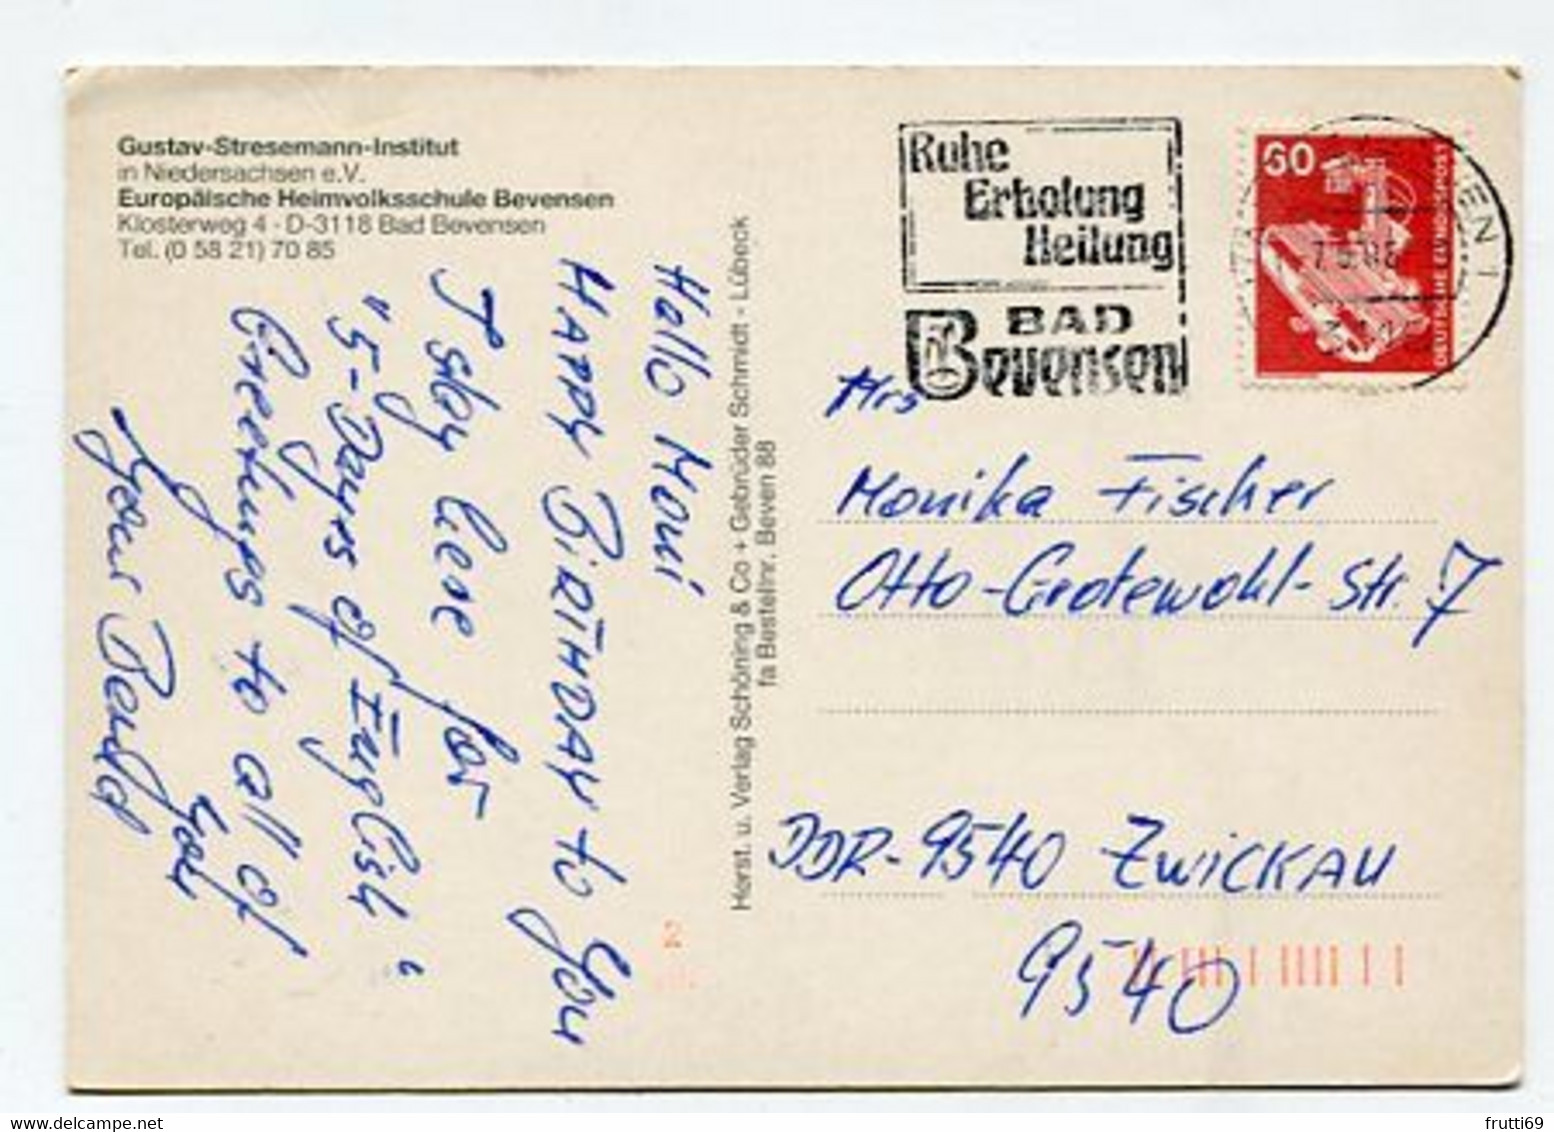 Gustav-Stresemann-Institut
in Niedersachsen e.V.
Europäische Heimvolksschule Bevensen
Klosterweg 4 - D-3118 Bad Bevensen
Tel. (0 58 21) 70 85
Hallo Moni
HAPPY BIRTHDAY to you
I stay here for
"5-Days of English"
Greetings to all of
you
Your Bernd
Herst. u. Verlag Schöning & Co + Gebrüder Schmidt - Lübeck
fa Bestellnr. Beven 88
Ruhe
Erholung
Heilung
BAD
Bevensen
60
DEUTSCHE BUNDESPOST
Mrs
Monika Fischer
Otto-Grotewohl-Str. 7
DDR-9540 ZWICKAU
9540
2
frutti69